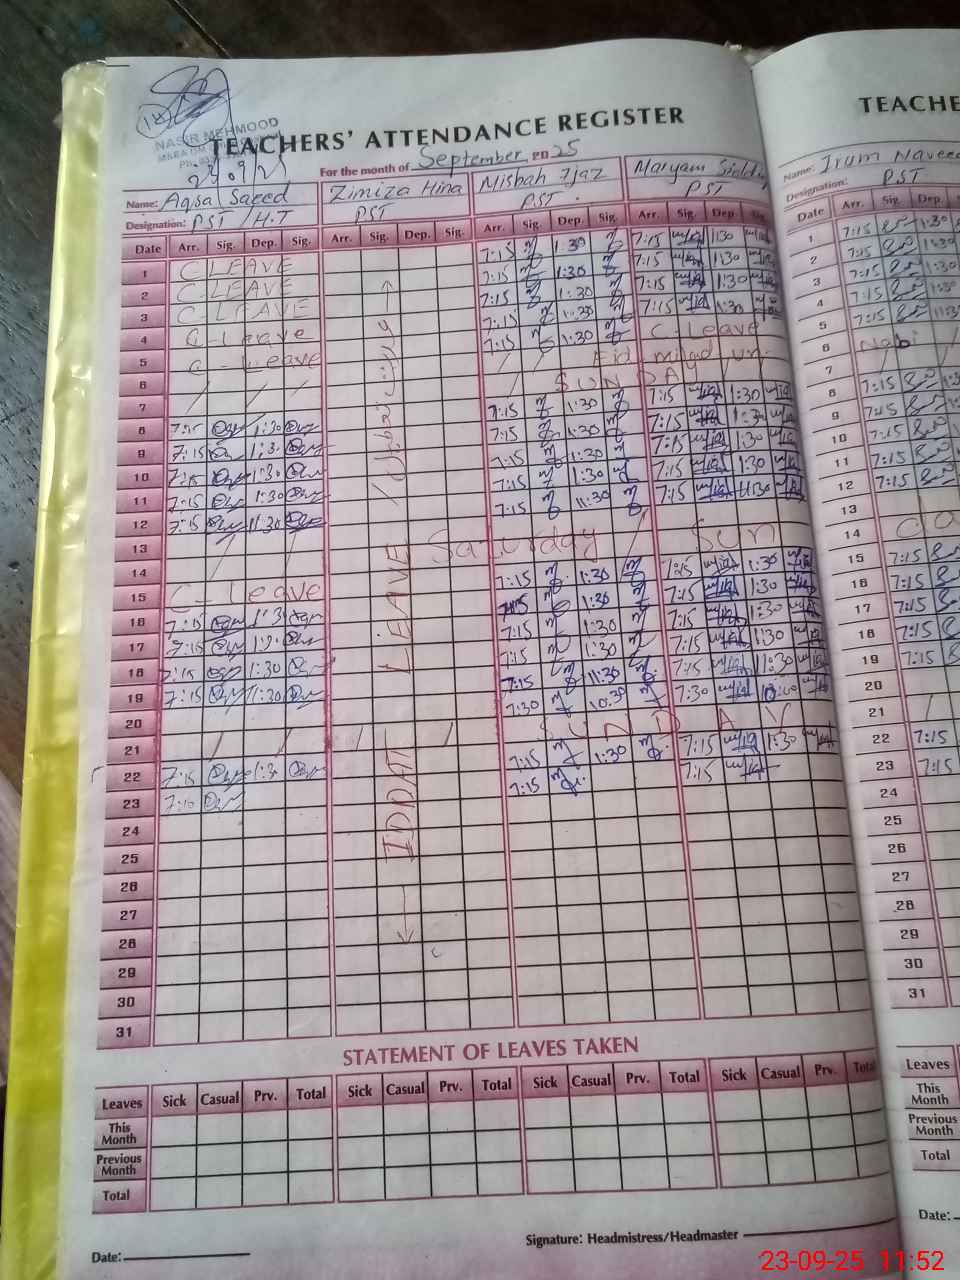 NASIR MEHMOOD
TEACHERS' ATTENDANCE REGISTER
For the month of September 25
Name: Aqsa Saeed Zimiza Hina Misbah Ijaz Maryam
Designation: PST / H.T PST PST PST
Date Arr. Sig. Dep. Sig. Arr. Sig. Dep. Sig. Arr. Sig. Dep. Sig. Arr. Sig. Dep. Sig.
1 C LEAVE 7:15 1:30 7:15 1:30
2 C-LEAVE 7:15 1:30 7:15 1:30
3 C-LEAVE 7:15 1:30 7:15 1:30
4 C-Leave 7:15 1:30 7:15 1:30
5 C-Leave 7:15 1:30 C-Leave
6 / / / / / Eid milad un
7 / / / SUNDAY
8 7:15 1:30 7:15 1:30 7:15 1:30
9 7:15 1:3 7:15 1:30 7:15 1:30
10 7:15 1:30 7:15 1:30 7:15 1:30
11 7:15 1:30 7:15 1:30 7:15 1:30
12 7:15 11:30 7:15 11:30 7:15 11:30
13 / / Saturday / Sun
14
15 C-Leave 7:15 1:30 7:15 1:30
16 7:15 1:30 7:15 1:30 7:15 1:30
17 7:15 1:30 7:15 1:30 7:15 1:30
18 7:15 1:30 7:15 1:30 7:15 1:30
19 7:15 11:30 7:15 11:30 7:15 11:30
20 7:30 10:30 7:30 10:00
21 / / / / SUNDAY
22 7:15 1:3 7:15 1:30 7:15 1:30
23 7:10 7:15 7:15
24
25
26
27
28
29
30
31
← IDDAT LEAVE
STATEMENT OF LEAVES TAKEN
Leaves Sick Casual Prv. Total Sick Casual Prv. Total Sick Casual Prv. Total Sick Casual Prv. Total
This Month
Previous Month
Total
Date:
Signature: Headmistress/Headmaster
TEACHE
Name: Irum Naveed
Designation: PST
Date Arr. Sig. Dep.
1 7:15 1:30
2 7:15 1:30
3 7:15 1:30
4 7:15 1:30
5 7:15 11:30
6 Nabi
7
8 7:15 1:30
9 7:15
10 7:15
11 7:15
12 7:15
13
14
15 7:15
16 7:15
17 7:15
18 7:15
19 7:15
20
21
22 7:15
23 7:15
24
25
26
27
28
29
30
31
Leaves
This Month
Previous Month
Total
Date:
23-09-25 11:52